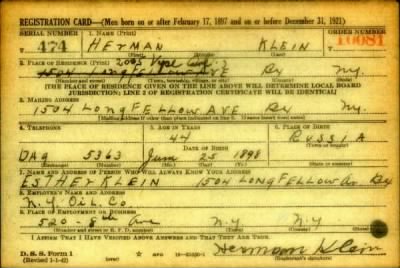 REGISTRATION CARD—(Men born on or after February 17, 1897 and on or before December 31, 1921)
SERIAL NUMBER 1. NAME (Print) ORDER NUMBER
U 474 HERMAN KLEIN 10081
(First) (Middle) (Last)
2. PLACE OF RESIDENCE (Print) 2005 Vyse Ave
1504 LONGFELLOW AVE Bx N.Y.
(Number and street) (Town, township, village, or city) (County) (State)
[THE PLACE OF RESIDENCE GIVEN ON THE LINE ABOVE WILL DETERMINE LOCAL BOARD
JURISDICTION; LINE 2 OF REGISTRATION CERTIFICATE WILL BE IDENTICAL]
3. MAILING ADDRESS
1504 LONGFELLOW AVE Bx N.Y.
[Mailing address if other than place indicated on line 2. If same insert word same]
4. TELEPHONE 5. AGE IN YEARS 6. PLACE OF BIRTH
44 RUSSIA
DATE OF BIRTH
DAG 5363 June 25 1898
(Exchange) (Number) (Mo.) (Day) (Yr.) (State or country)
7. NAME AND ADDRESS OF PERSON WHO WILL ALWAYS KNOW YOUR ADDRESS
ESTHER KLEIN 1504 LONGFELLOW Av. Bx
8. EMPLOYER'S NAME AND ADDRESS
N.Y. OIL. CO.
9. PLACE OF EMPLOYMENT OR BUSINESS
520-8th Ave N.Y N.Y
(Number and street or R. F. D. number) (Town) (County) (State)
I AFFIRM THAT I HAVE VERIFIED ABOVE ANSWERS AND THAT THEY ARE TRUE.
D. S. S. Form 1
(Revised 1-1-42) Herman Klein
(Registrant's signature)